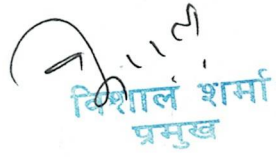 विशाल शर्मा
प्रमुख